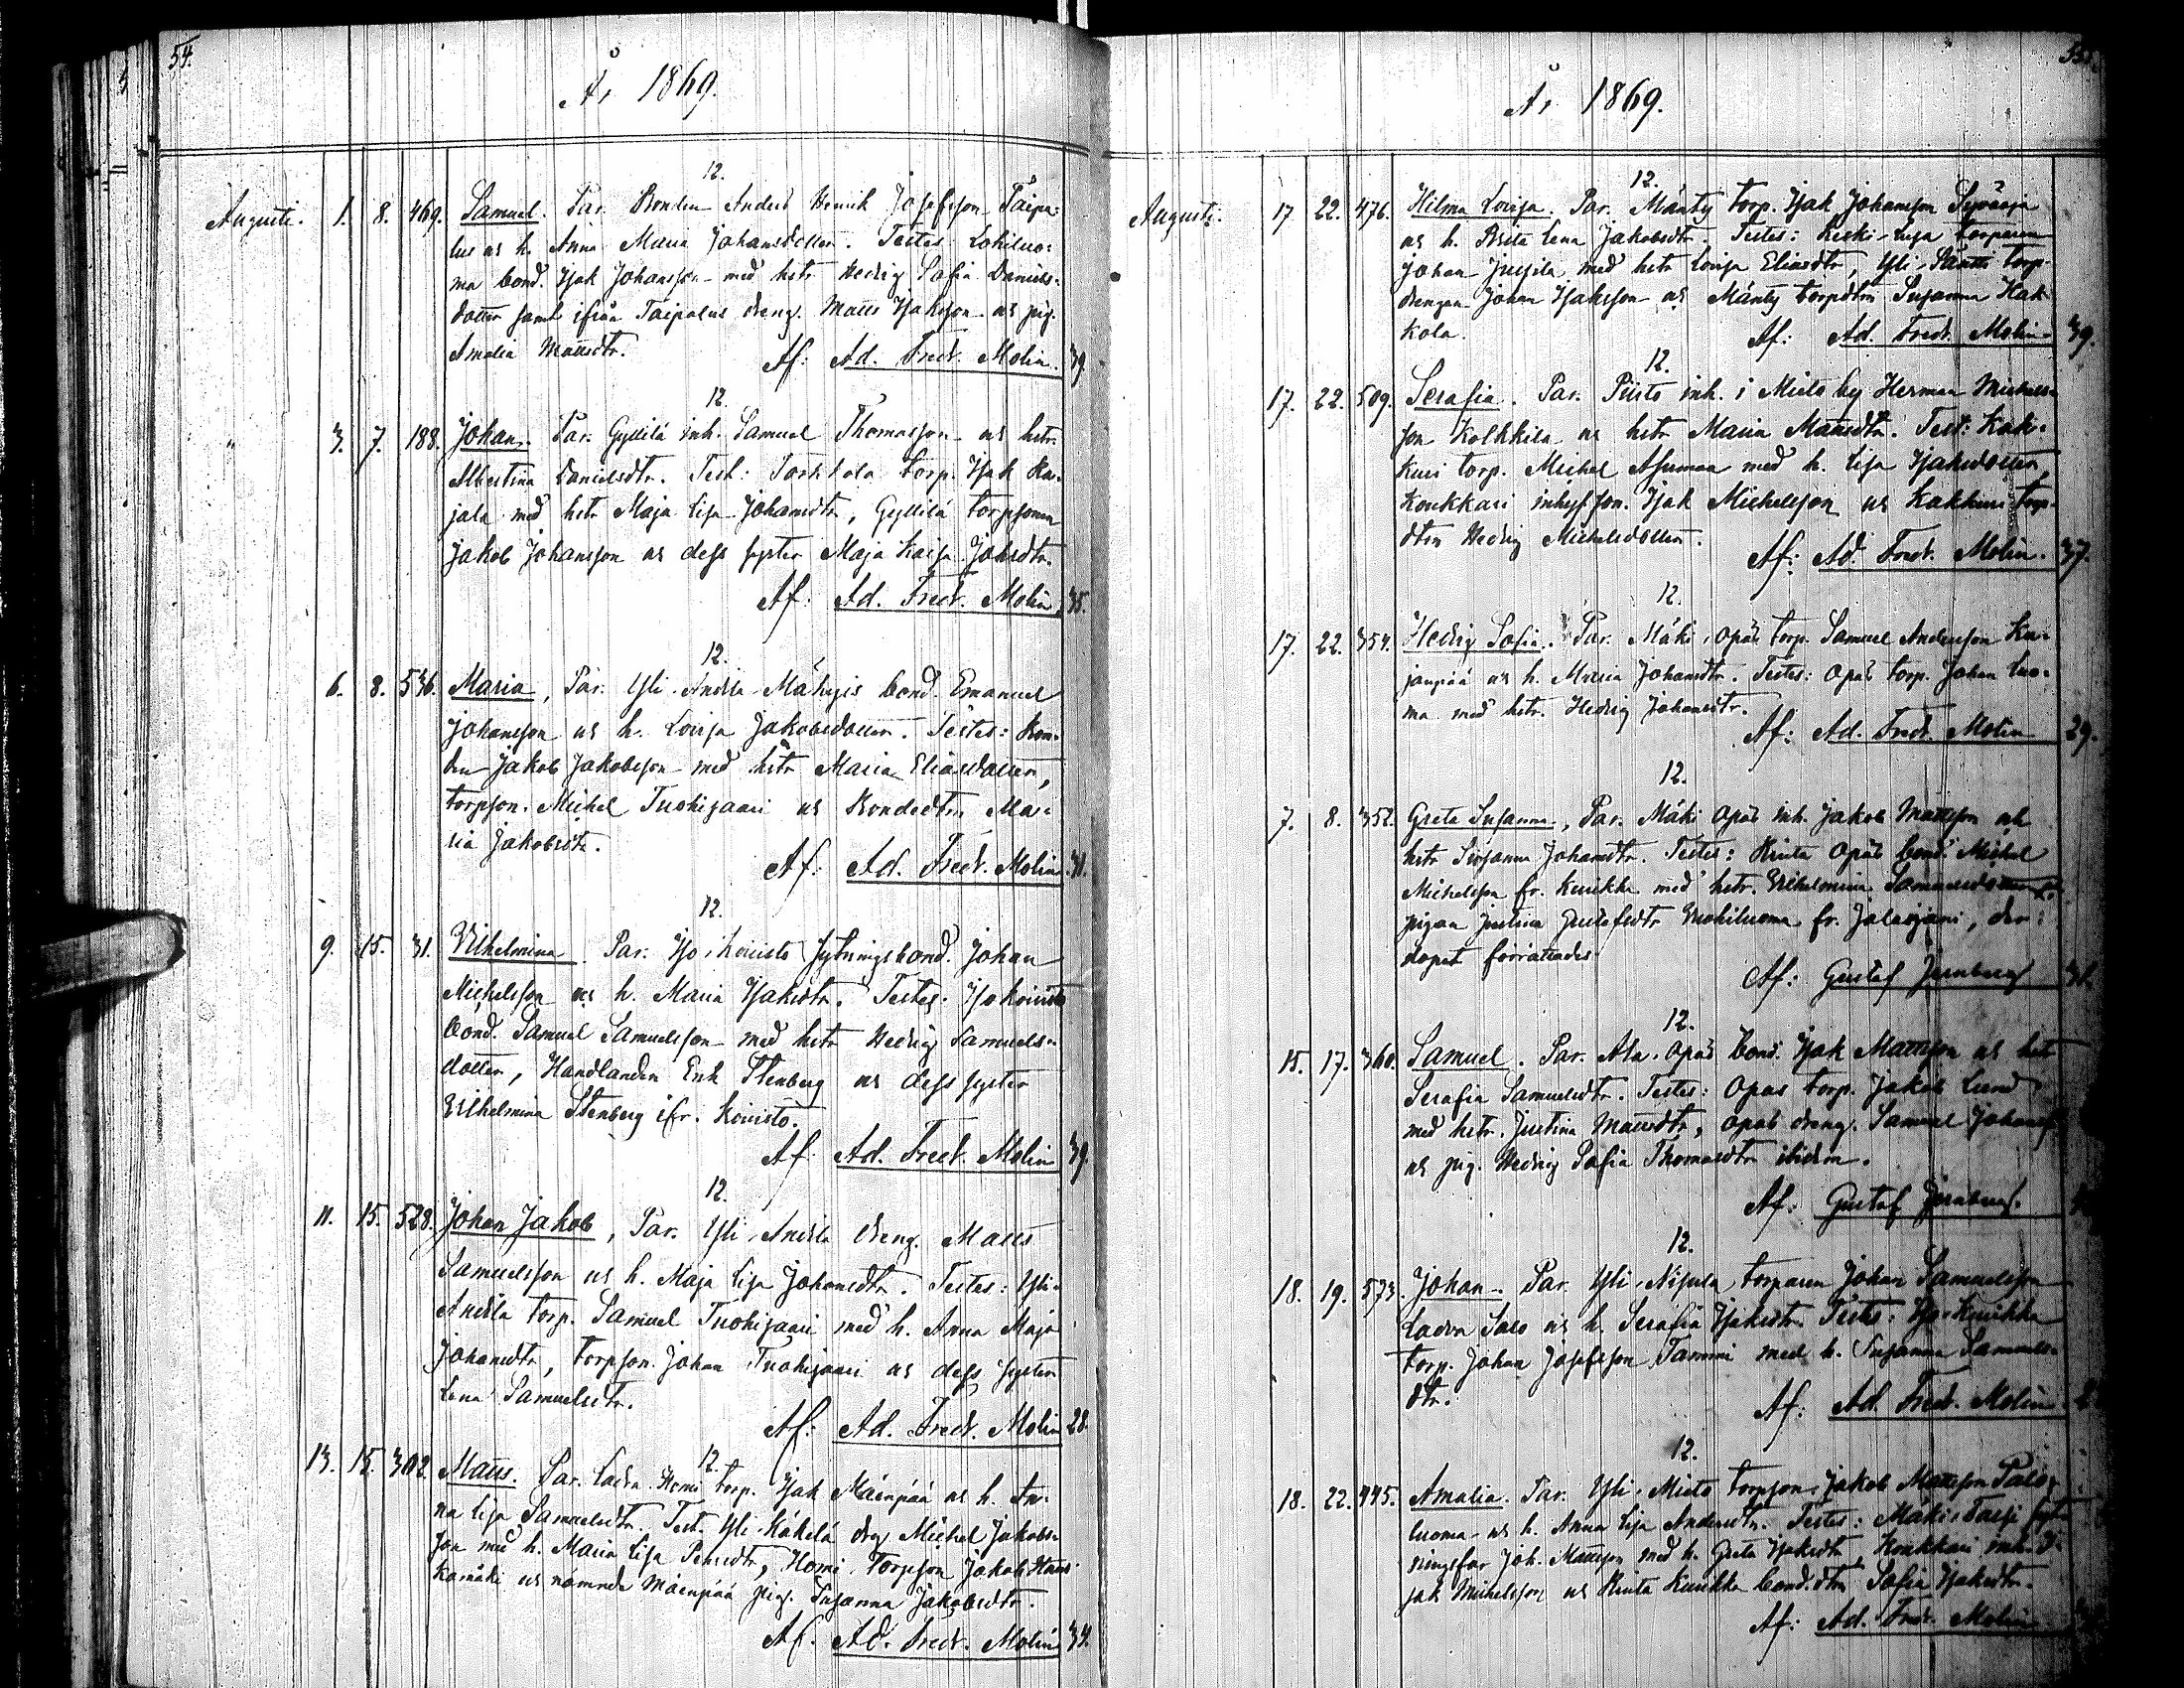 54.
År 1869.
12.
Augusti. 1. 8. 469. Samuel. Par. Bonden Anders Henrik Josefsson Taipa-
lus ock h. Anna Maria Johansdotter. Testes Lohiluo-
ma bond. Isak Johansson med hstr Hedvig Sofia Daniels-
dotter samt ifrån Taipalus dreng. Matts Isaksson ock pig.
Amalia Mattsdtr.
Af: Ad. Fredr. Molin. 39.
12.
" 3. 7. 188. Johan. Par. Gyllilä inh. Samuel Thomasson ock hstr.
Albertina Danielsdtr. Test: torp. Isak Ka-
jala med hstr Maja Lisa Johansdtr, Gyllilä torpsonen
Jakob Johansson ock dess syster Maja Kaisa Johsdtr.
Af: Ad. Fredr. Molin 35.
12.
6. 8. 536. Maria, Par. Yli Andila Mähyis bond. Emanuel
Johansson ock h. Lovisa Jakobsdotter. Testes: Bon-
den Jakob Jakobsson med hstr Maria Eliasdotter,
torpson. Michel Tuohisaari ock Bondedtrn Ma-
ria Jakobsdtr.
Af: Ad. Fredr. Molin 41.
12.
9. 15. 31. Wilhelmina. Par. Iso Koivisto sytningsbond. Johan
Michelsson ock h. Maria Isaksdtr. Testes: Isokoivisto
bond. Samuel Samuelsson med hstr Hedvig Samuels-
dotter, Handlanden Erik Stenberg ock dess syster
Wilhelmina Stenberg ifr. Koivisto.
Af: Ad. Fredr. Molin 39.
12.
11. 15. 528. Johan Jakob, Par. Yli Andila dreng. Matts
Samuelsson ock h. Maja Lisa Johansdtr. Testes: Yli-
Andila torp. Samuel Tuohisaari med h. Anna Maja
Johansdtr, torpson. Johan Tuohisaari ock dess syster
Lena Samuelsdtr.
Af: Ad. Fredr. Molin 28.
12.
13. 15. 302. Matts. Par. Ladva Homi torp. Isak Mäenpää ock h. An-
na Lisa Samuelsdtr. Test. Yli Käkelä drg Michel Jakobs-
son med h. Maria Lisa, Homi torpson Jakob
ock nämnde Mäenpää pig. Susanna Jakobsdtr.
Af. Ad. Fredr. Molin 34.
55.
År 1869.
12.
Augusti. 17. 22. 476. Hilma Lovisa. Par. Mänty torp. Isak Johansson Syväoja
ock h. Brita Lena Jakobsdtr. Testes: Keski-Lusa torparen
Johan Jussila med hstr Lovisa Eliasdtr, Yli torp-
drengen Johan Isaksson ock Mänty torpdtrn Susanna Kak-
kola.
Af: Ad. Fredr. Molin 39.
12.
17. 22. 509. Serafia. Par. Piisto inh. i Mieto by Herman Michels-
son Kolkkila ock hstr Maria Mattsdtr. Test: Kak-
kuri torp. Michel Asumaa med h. Lisa Isaksdotter,
Koukkari inhysson. Isak Michelsson ock Kakkuri torp-
dtrn Hedvig Michelsdotter.
Af: Ad. Fredr. Molin. 37.
12.
17. 22. 354. Hedvig Sofia. Par. Mäki Opas torp. Samuel Andersson Ka-
janpää ock h. Maria Johansdtr. Testes: Opas torp. Johan Luo-
ma med hstr. Hedvig Johansdtr.
Af: Ad. Fredr. Molin 29.
12.
7. 8. 352. Greta Susanna, Par. Mäki Opas inh. Jakob Mattsson ock
hstr Susanna Johansdtr. Testes: Rinta Opas bond. Michel
Michelsson fr. Kurikka med hstr. Wilhelmina Samuelsdotter,
pigan Justina Gustafsdtr fr. Jalasjärvi, der
dopet förrättades.
Af: Gustaf Jernberg
12.
15. 17. 360. Samuel. Par. Ala Opas bond. Isak Mattsson ock hstr
Serafia Samuelsdtr. Testes: Opas torp. Jakob Lund
med hstr. Justina Mattsdtr, Opas dreng. Samuel
ock pig. Hedvig Sofia Thomasdtr ibidem.
Af: Gustaf Jernberg.
12.
18. 19. 573. Johan. Par. Yli Nisula torparen Johan Samuelsson
Ladva Salo ock h. Serafia Isaksdtr. Testes: Iso Kurikka
torp. Johan Josefsson Tammi med h. Susanna Samuels-
dtr.
Af: Ad. Fredr. Molin
12.
18. 22. 445. Amalia. Par. Yli Mieto torpson Jakob Mattsson Palo-
luoma ock h. Anna Lisa Andersdtr. Testes: Mäki
ningsfar Joh. Mattsson med h. Greta Isaksdtr Koukkari inh. I-
sak Michelsson ock Rinta Kurikka bond.dtrn Sofia Isaksdtr.
Af: Ad. Fredr. Molin